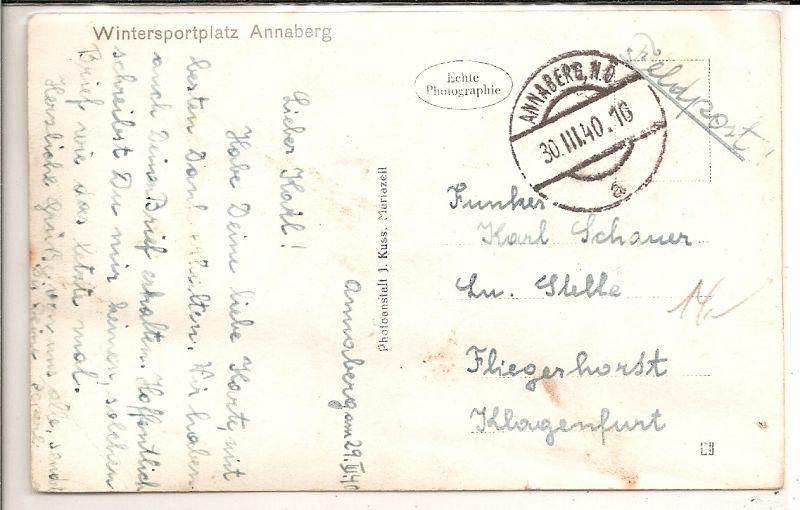 Wintersportplatz Annaberg
Echte
Photographie
ANNABERG, N.Ö.
30.III.40.16
a
Feldpost!
Photoanstalt J. Kuss, Mariazell
Annaberg am 29.III.40
Lieber Karl!
Habe Deine liebe Karte mit
besten Dank erhalten. Wir haben
auch Deinen Brief erhalten. Hoffentlich
schreibst Du mir keinen, solchen
Brief wie das letzte mal.
Herzliche Grüße von uns alle, sendet
Funker
Karl Schauer
Ln. Stelle
Fliegerhorst
Klagenfurt
14.-